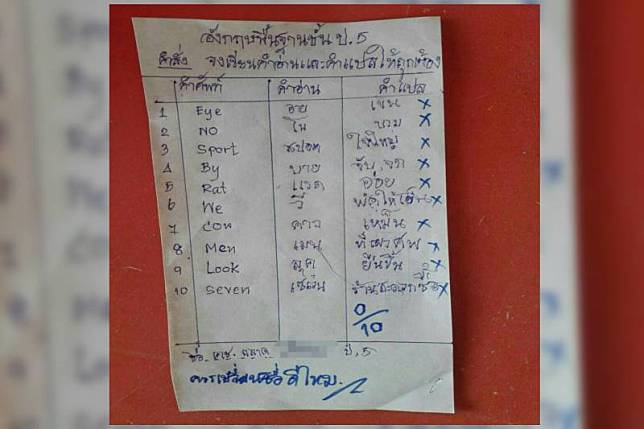 อังกฤษพื้นฐานชั้น ป.5
คำสั่ง จงเขียนคำอ่านและคำแปลให้ถูกต้อง
คำศัพท์ คำอ่าน คำแปล
1 Eye อาย เขิน ×
2 NO โน บวม ×
3 Sport สปอต ใจใหญ่ ×
4 By บาย จับ, จก ×
5 Rat แรด อ่อย ×
6 We วี พัดให้เย็น ×
7 Cow คาว เหม็น ×
8 Men เมน ที่เผาศพ ×
9 Look ลุค ยืนขึ้น ×
10 Seven เซเว่น ร้านสะดวกซื้อ ×
0/10
ชื่อ ด.ช. ฉลาด ป.5
ควรเปลี่ยนชื่อดีไหม